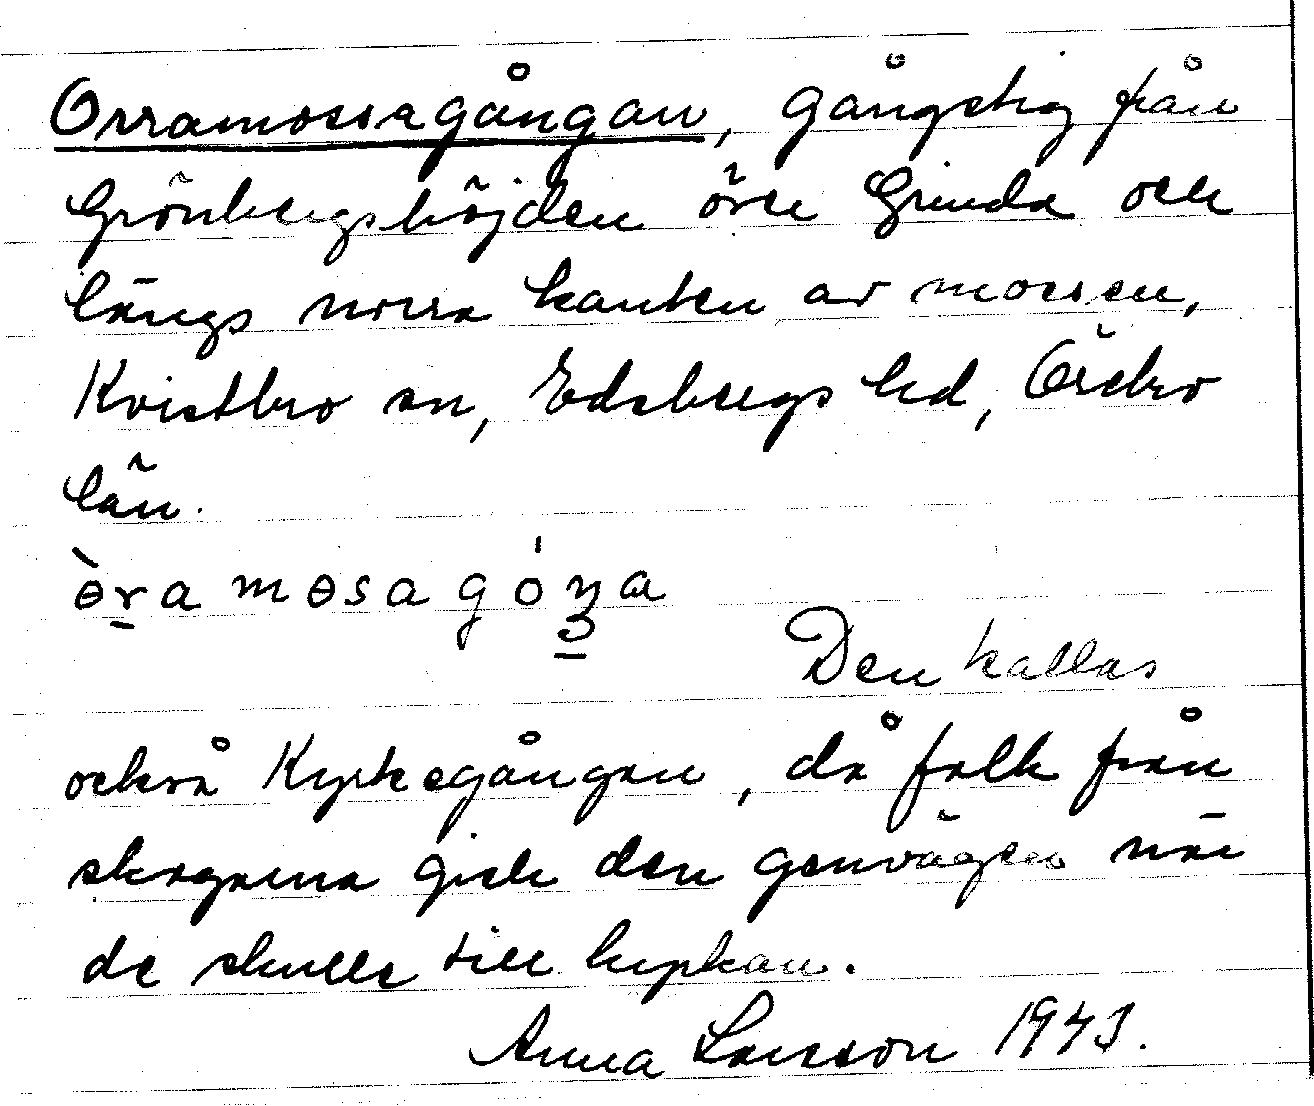 Orramossagångan, gångstig från
Grönbergshöjden över Grinda och
längs norra kanten av mossen,
Kvistbro sn, Edsbergs hd, Örebro
län.
ɵ̀ra mɵsa góŋa
Den kallas
också Kyrkegången, då folk från
skogarna gick den genvägen när
de skulle till kyrkan.
Anna Larsson 1943.